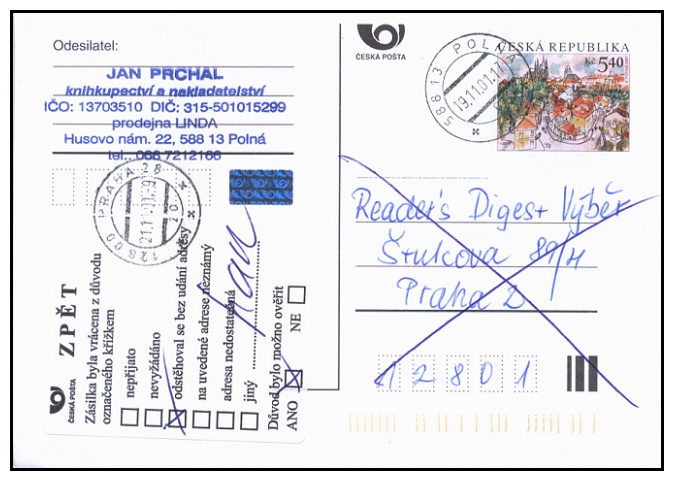 Odesilatel:
JAN PRCHAL
knihkupectví a nakladatelství
IČO: 13703510 DIČ: 315-501015299
prodejna LINDA
Husovo nám. 22, 588 13 Polná
tel.: 066 7212166
ČESKÁ POŠTA
588 13 POLNÁ
19.11.01
ČESKÁ REPUBLIKA
Kč 5,40
PRAHA 28
21.11.01
12800
Reader's Digest Výběr
Praha 2
12801
ČESKÁ POŠTA
ZPĚT
Zásilka byla vrácena z důvodu
označeného křížkem
nepřijato
nevyžádáno
odstěhoval se bez udání adresy
na uvedené adrese neznámý
adresa nedostatečná
jiný
Důvod bylo možno ověřit
ANO NE